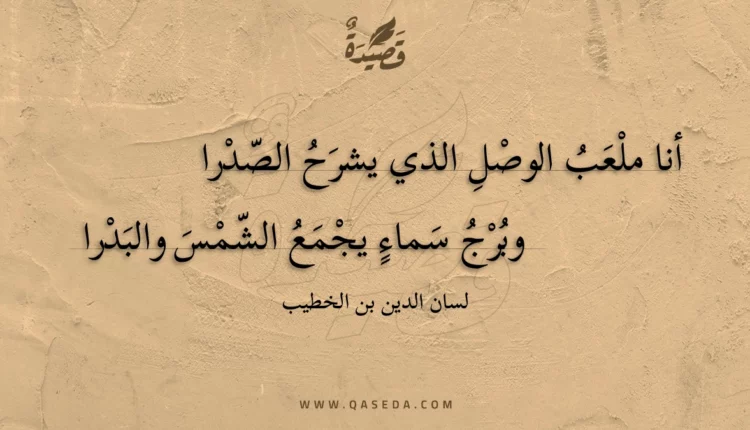 قَصِيْدَةٌ
أنا ملْعَبُ الوصْلِ الذي يشرَحُ الصّدْرا
وبُرْجُ سَماءٍ يجْمَعُ الشّمْسَ والبَدْرا
لسان الدين بن الخطيب
WWW.QASEDA.COM